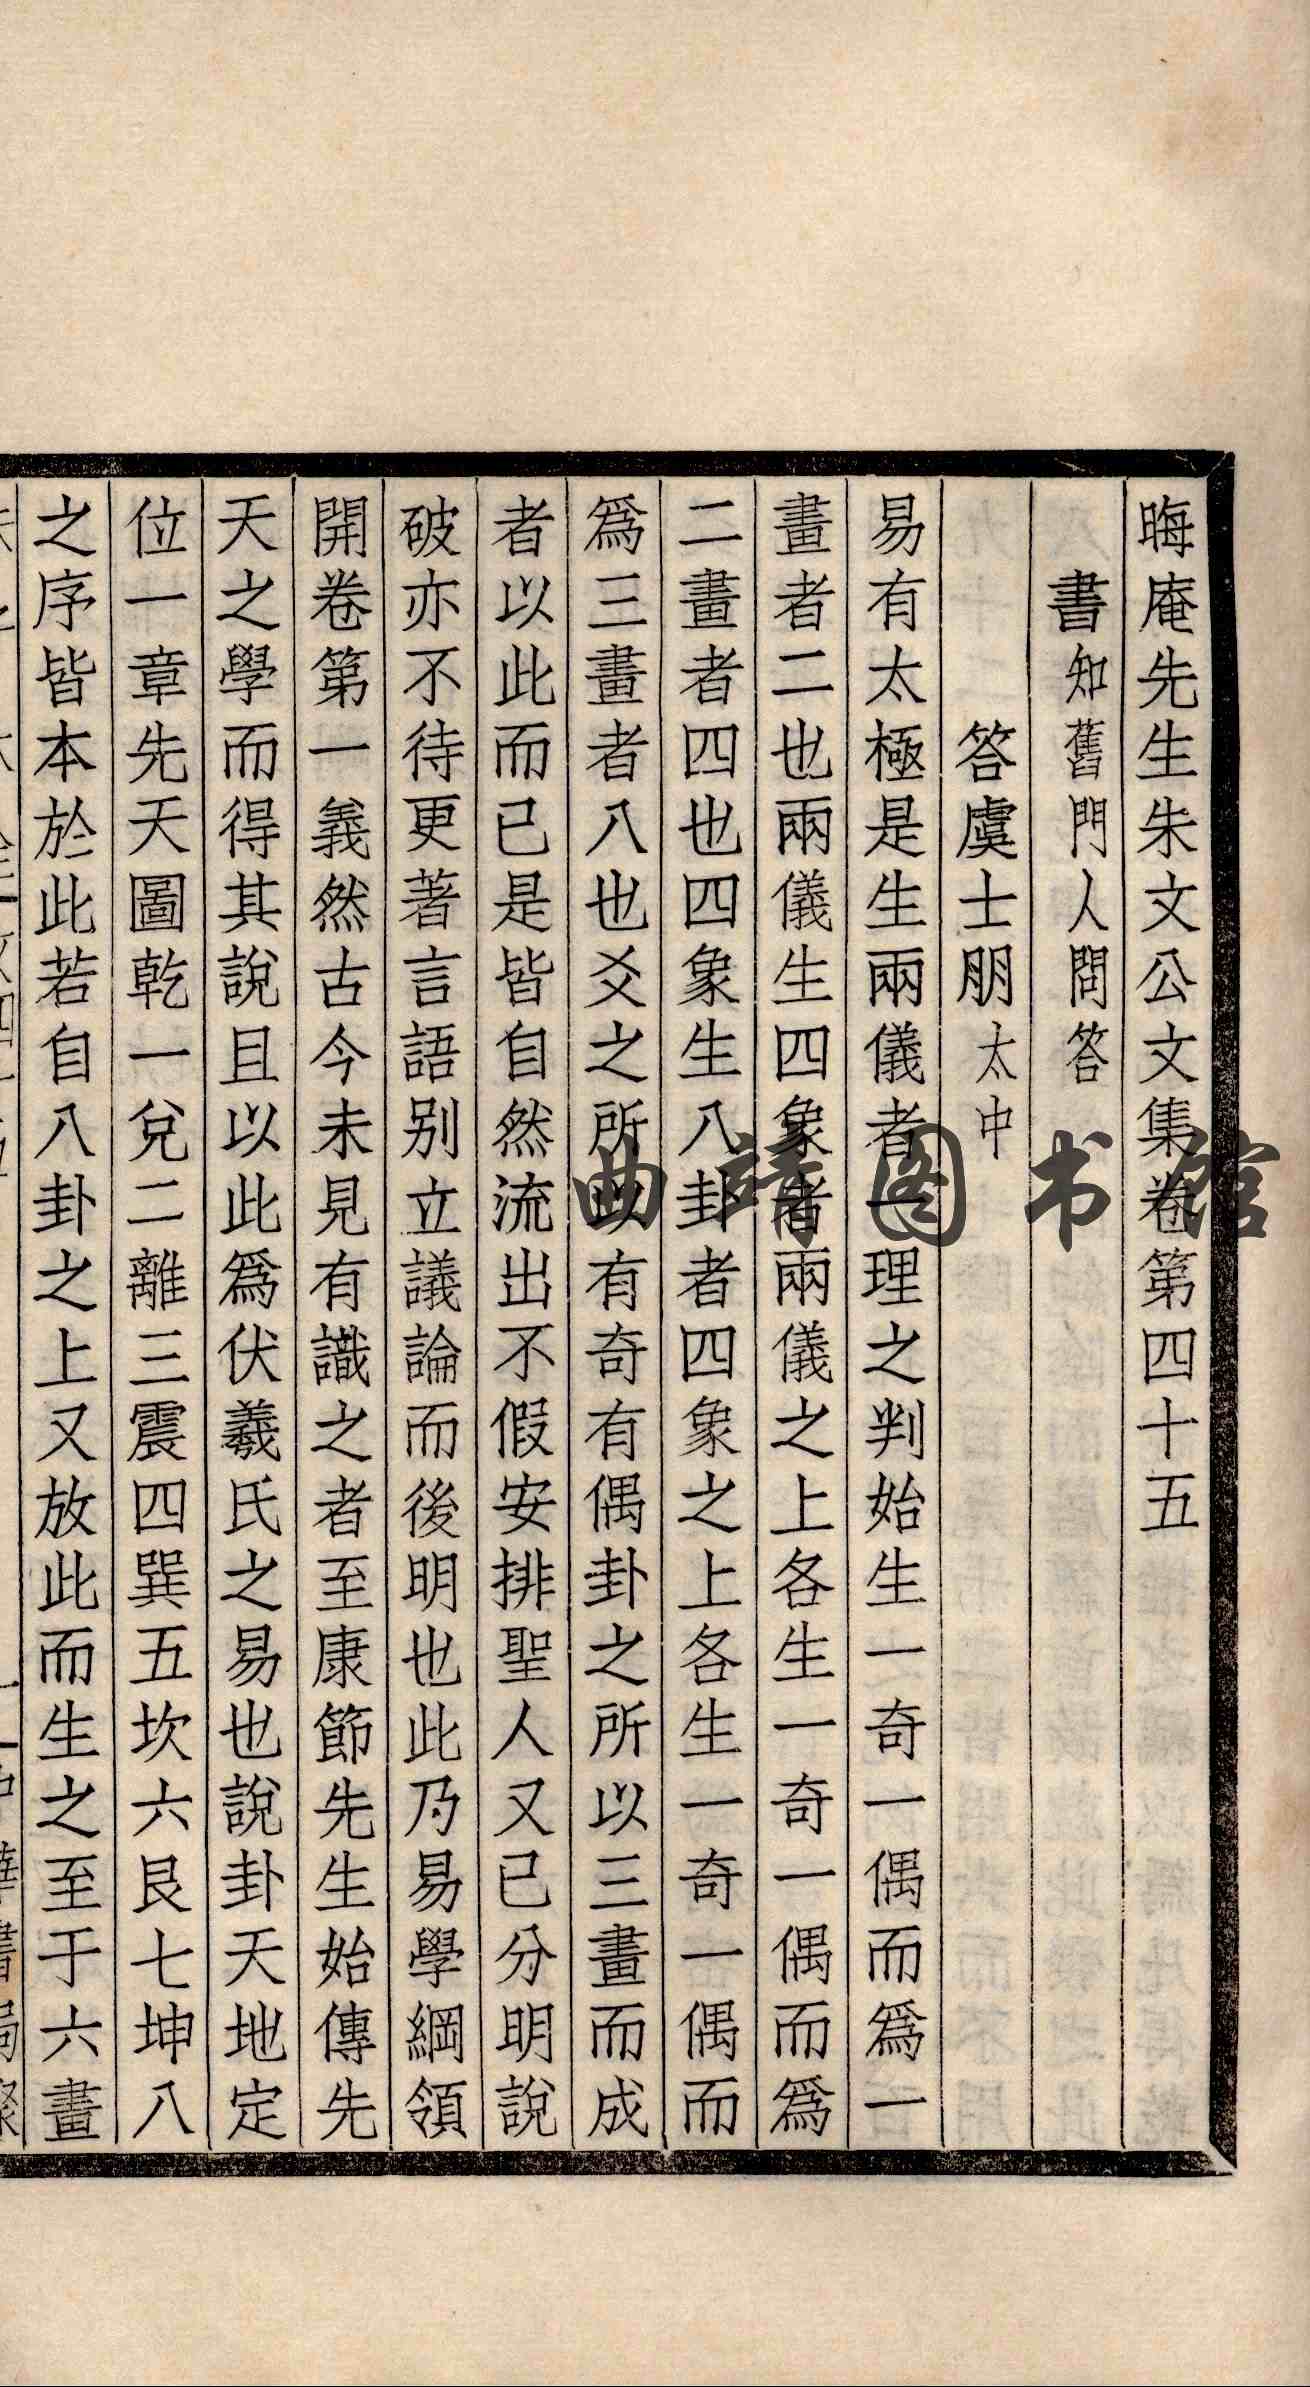 晦庵先生朱文公文集卷第四十五
書知舊門人問答
答虞士朋太中
易有太極是生兩儀者一理之判始生一奇一偶而爲一
畫者二也兩儀生四象者兩儀之上各生一奇一偶而爲
二畫者四也四象生八卦者四象之上各生一奇一偶而
爲三畫者八也爻之所以有奇有偶卦之所以三畫而成
者以此而已是皆自然流出不假安排聖人又已分明說
破亦不待更著言語别立議論而後明也此乃易學綱領
開卷第一義然古今未見有識之者至康節先生始傳先
天之學而得其說且以此爲伏羲氏之易也說卦天地定
位一章先天圖乾一兌二離三震四巽五坎六艮七坤八
之序皆本於此若自八卦之上又放此而生之至于六畫
曲靖图书馆